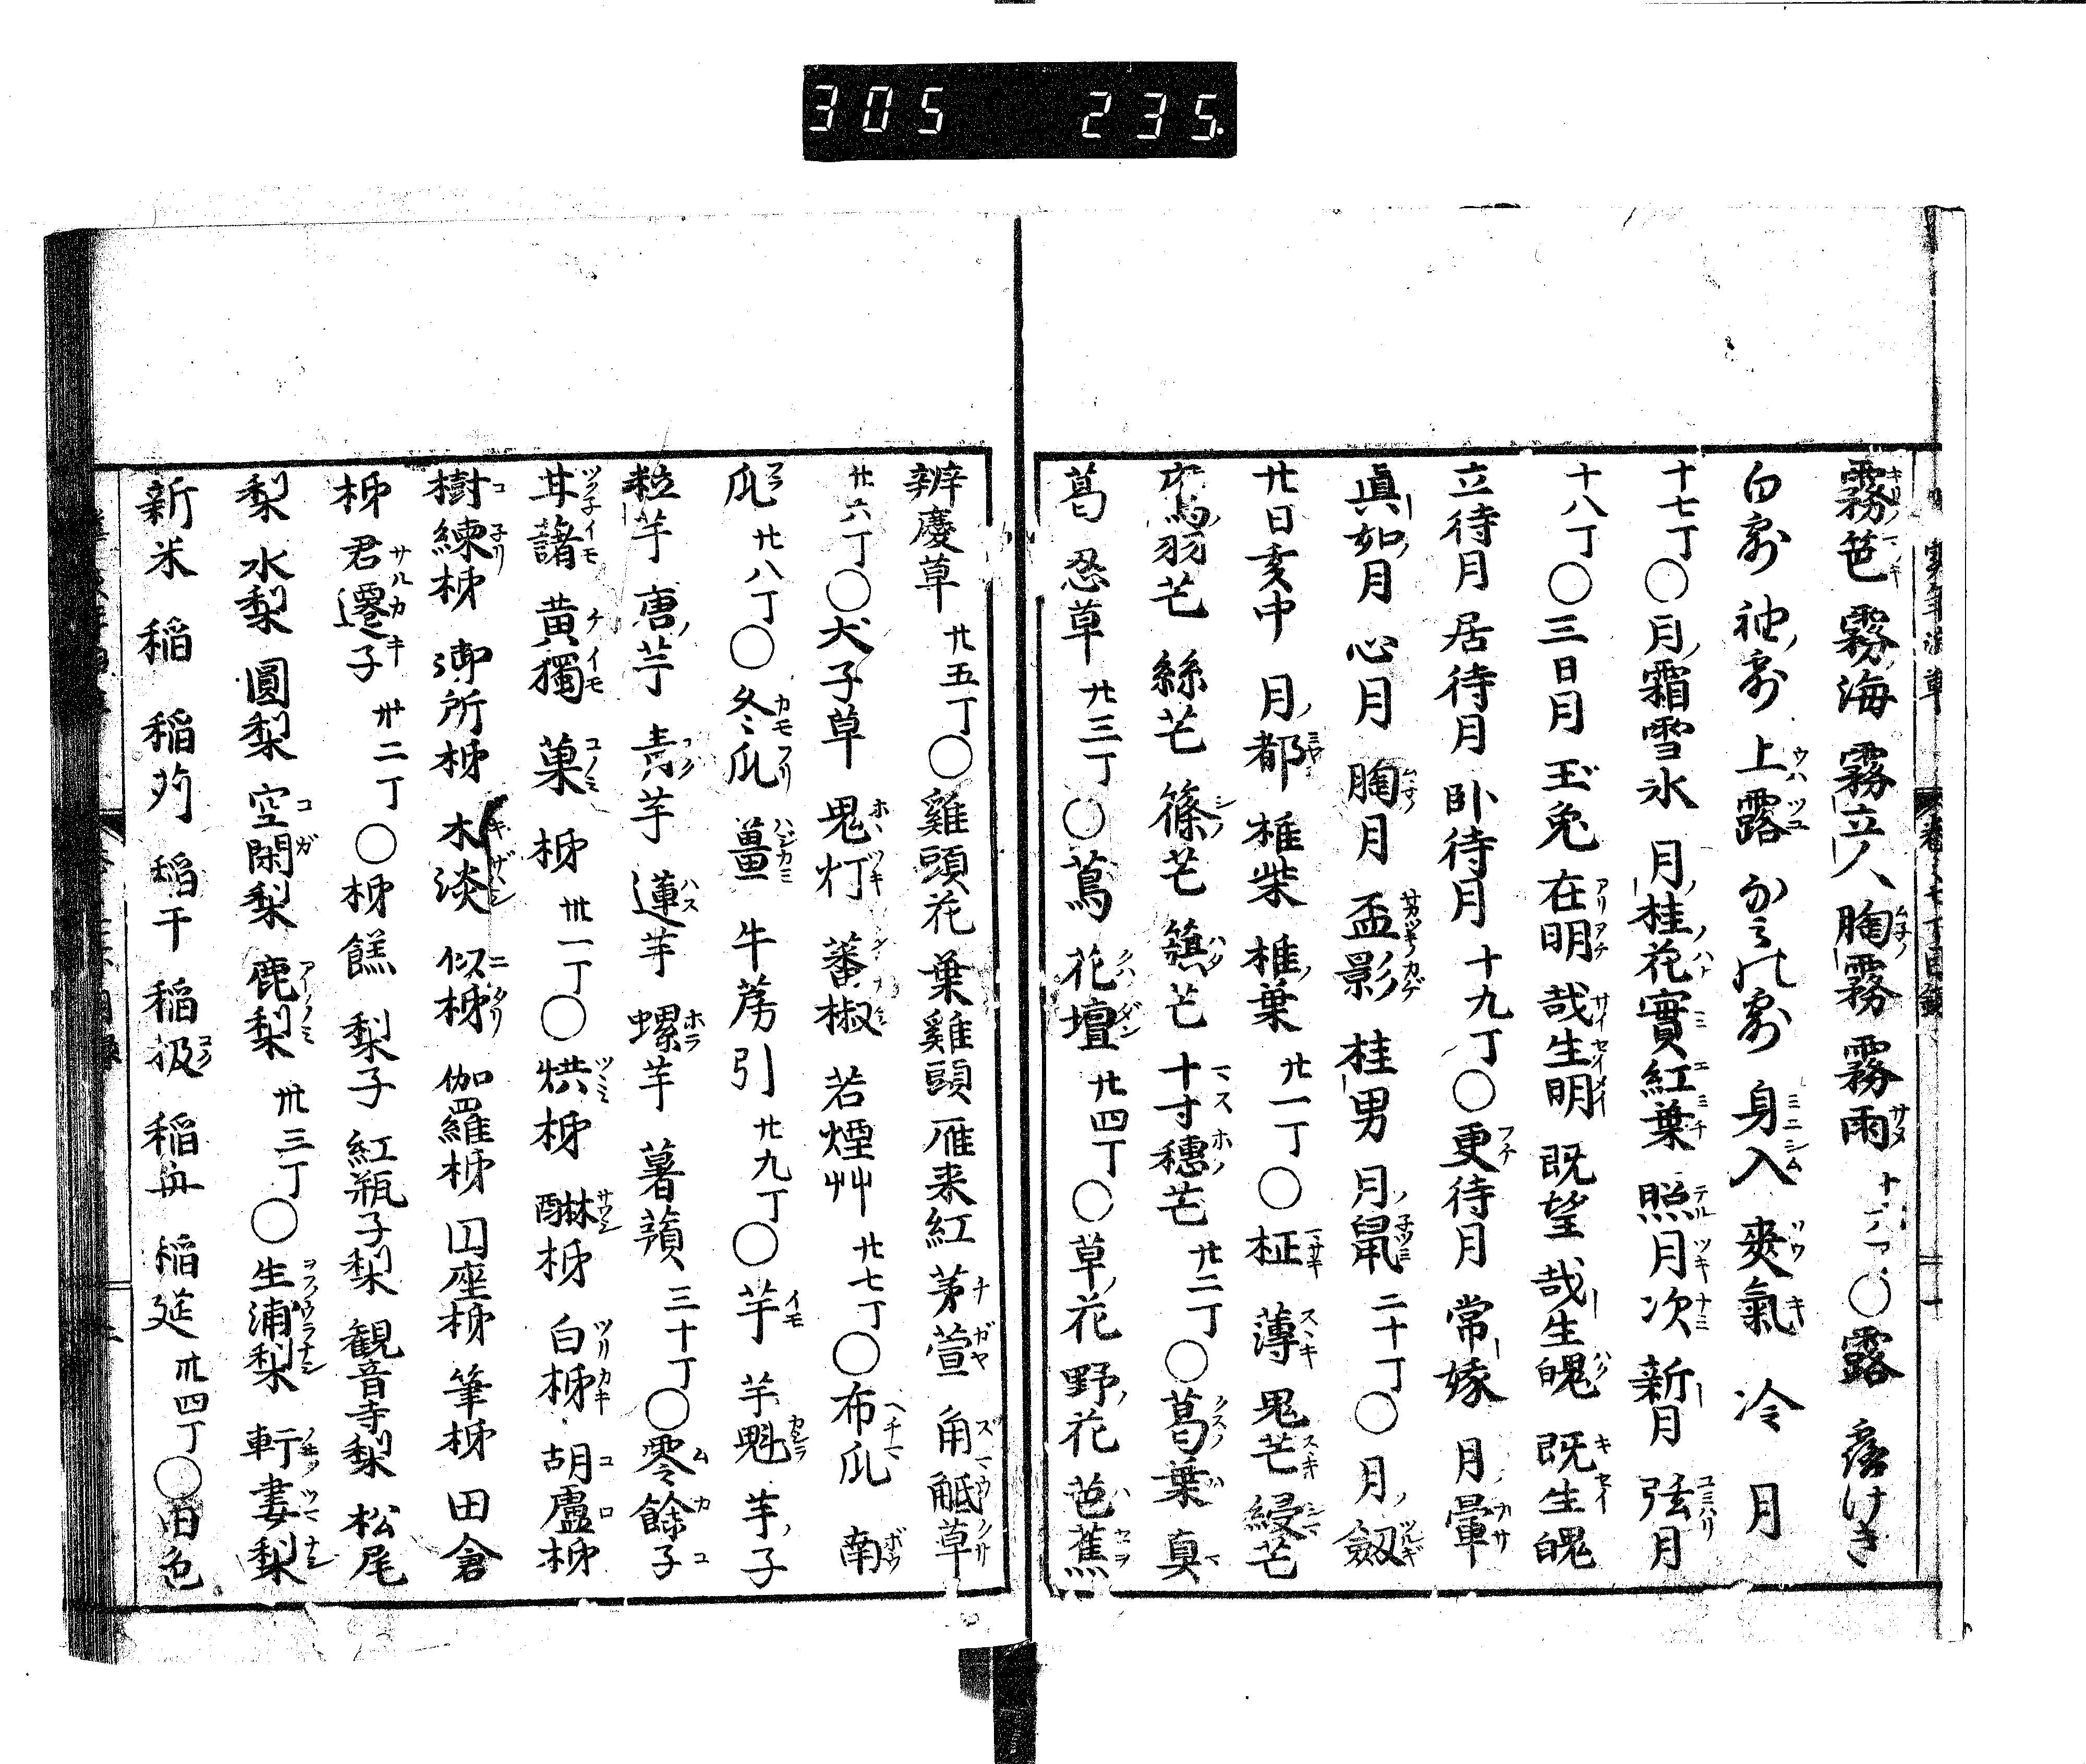 305 235
霧笆 霧海 霧立人 胸霧 霧雨 〇露 露けき
白露 袖露 上露 露 身入 爽氣 冷 月
十七丁〇月霜雪氷 月桂花實紅葉 照月次 新月 弦月
十八丁〇三日月 玉兎 在明 哉生明 既望 哉生魄 既生魄
立待月 居待月 臥待月 十九丁〇更待月 常嫁 月暈
眞如月 心月 胸月 盃影 桂男 月鼠 二十丁〇月劔
廿日亥中 月都 椎柴 椎葉 廿一丁〇柾 薄 鬼芒 縵芒
鷹羽芒 絲芒 篠芒 籏芒 十寸穗芒 廿二丁〇葛葉 真
葛 忍草 廿三丁〇蔦 花壇 廿四丁〇草花 野花 芭蕉
辨慶草 廿五丁〇雞頭花 葉雞頭 雁来紅 茅萱 角觝草
廿六丁〇犬子草 鬼灯 蕃椒 若煙艸 廿七丁〇布瓜 南
瓜 廿八丁〇冬瓜 薑 牛蒡引 廿九丁〇芋 芋魁 芋子
粒芋 唐芋 青芋 蓮芋 螺芋 薯蕷 三十丁〇零餘子
耳諸 黄獨 菓 柹 卅一丁〇烘柹 醂柹 白柹 胡盧柹
樹練柹 御所柹 木淡 似柹 伽羅柹 円座柹 筆柹 田倉
柹 君遷子 卅二丁〇柹餻 梨子 紅瓶子梨 観音寺梨 松尾
梨 水梨 圓梨 空閑梨 鹿梨 卅三丁〇生浦梨 軒妻梨
新米 稲 稲刈 稲干 稲扱 稲舟 稲莚 卅四丁〇田色